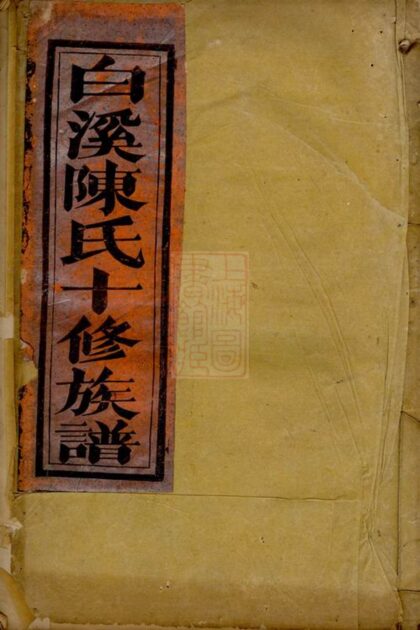 白溪陳氏十修族譜